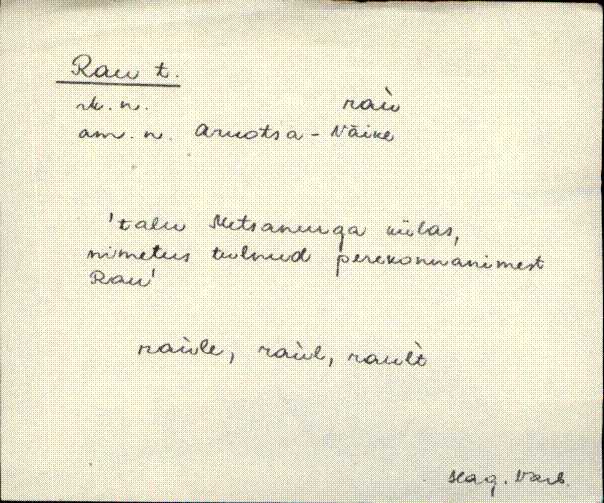 Rau t.
rk. n. raù
am. n. Arnotsa - Väike
'talu Metsanurga külas,
nimetus tulnud perekonnanimest
Rau'
raùle, raùl, raùlt
Hag. Varb.